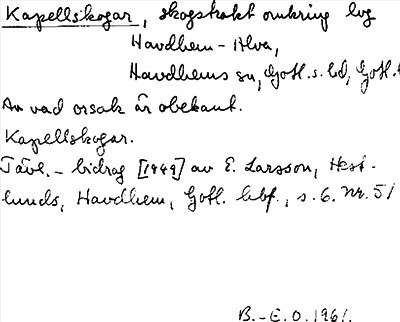 Kapellskogar, skogstrakt omkring lvg
Havdhem - Alva,
Havdhems sn, Gotl. s. hd, Gotl. l
Av vad orsak är obekant.
Kapellskogar.
Tävl. - bidrag [1949] av E. Larsson, Hest-
lunds, Havdhem, Gotl. hbf., s. 6. Nr. 51
B.-E.O. 1961.